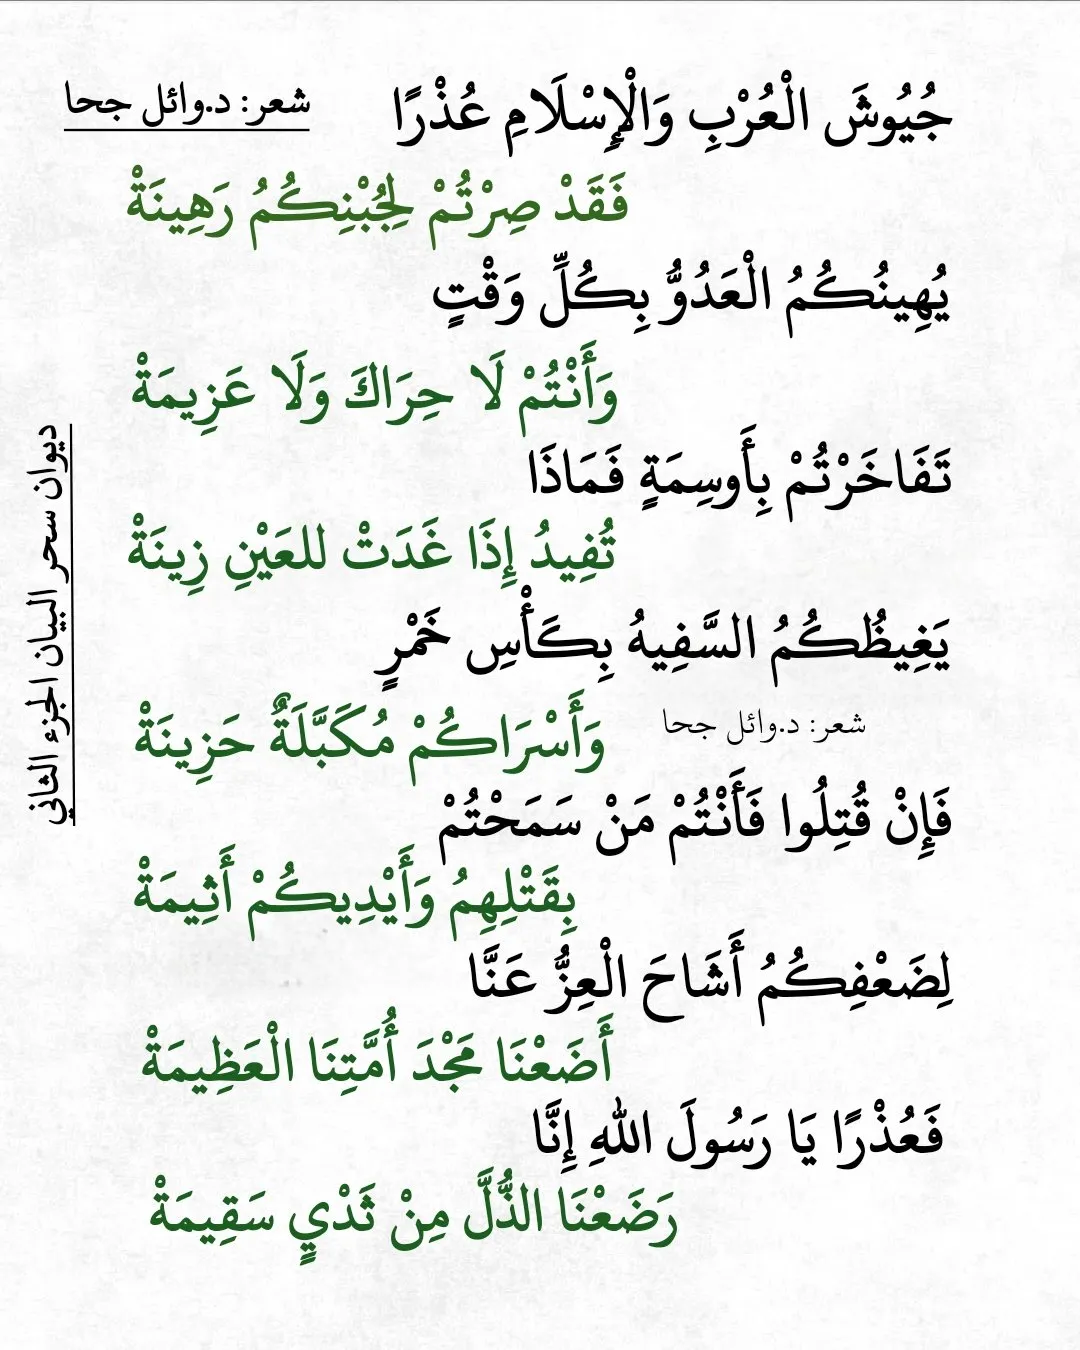 جُيُوشَ الْعُرْبِ وَالْإِسْلَامِ عُذْرًا
شعر: د.وائل جحا
فَقَدْ صِرْتُمْ لِجُبْنِكُمُ رَهِينَةْ
يُهِينُكُمُ الْعَدُوُّ بِكُلِّ وَقْتٍ
وَأَنْتُمْ لَا حِرَاكَ وَلَا عَزِيمَةْ
تَفَاخَرْتُمْ بِأَوسِمَةٍ فَمَاذَا
تُفِيدُ إِذَا غَدَتْ للعَيْنِ زِينَةْ
يَغِيظُكُمُ السَّفِيهُ بِكَأْسِ خَمْرٍ
وَأَسْرَاكُمْ مُكَبَّلَةٌ حَزِينَةْ
شعر: د.وائل جحا
فَإِنْ قُتِلُوا فَأَنْتُمْ مَنْ سَمَحْتُمْ
بِقَتْلِهِمُ وَأَيْدِيكُمْ أَثِيمَةْ
لِضَعْفِكُمُ أَشَاحَ الْعِزُّ عَنَّا
أَضَعْنَا مَجْدَ أُمَّتِنَا الْعَظِيمَةْ
فَعُذْرًا يَا رَسُولَ اللهِ إِنَّا
رَضَعْنَا الذُّلَّ مِنْ ثَدْيٍ سَقِيمَةْ
ديوان سحر البيان الجزء الثاني